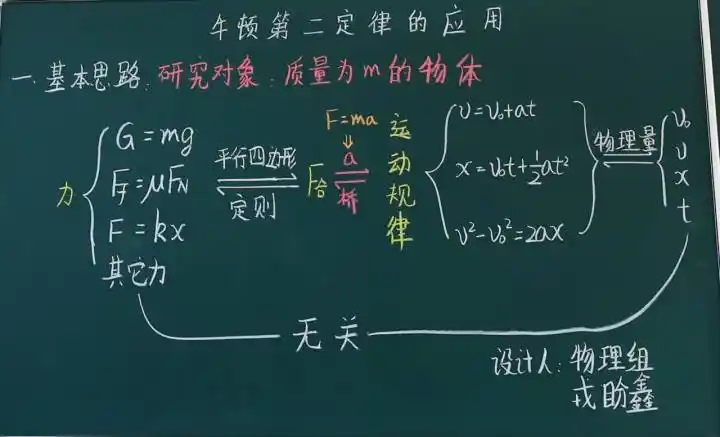 牛顿第二定律的应用
一.基本思路:研究对象:质量为m的物体
力
G=mg
F_f=μF_N
F=kx
其它力
平行四边形
定则
F合
F=ma
↓
a
桥
运动规律
v=v₀+at
x=v₀t+½at²
v²-v₀²=2ax
物理量
v₀
v
x
t
无关
设计人:物理组
戎盼鑫